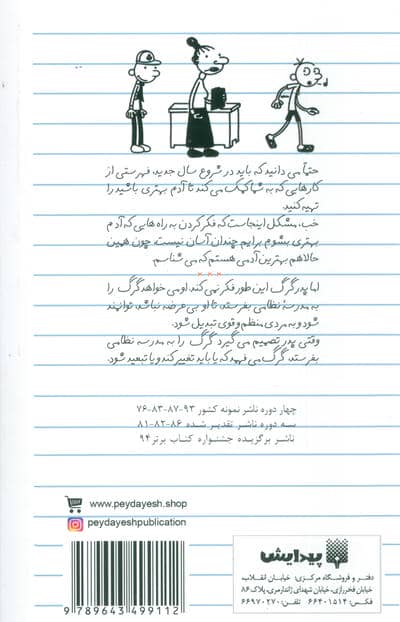 حتماً می دانید که باید در شروع سال جدید، فهرستی از
کارهایی که به شما کمک می کند تا آدم بهتری باشید را
تهیه کنید.
خب، مشکل اینجاست که فکر کردن به راه هایی که آدم
بهتری بشوم برایم چندان آسان نیست، چون همین
حالاهم بهترین آدمی هستم که می شناسم.
×××
اما پدر گرگ این طور فکر نمی کند. او می خواهد گرگ را
به مدرسهٔ نظامی بفرستد، تا او بی عرضه نباشد، توانمند
شود و به مردی منظم و قوی تبدیل شود.
وقتی پدر تصمیم می گیرد گرگ را به مدرسه نظامی
بفرستد، گرگ می فهمد که یا باید تغییر کند و یا تبعید شود.
چهار دوره ناشر نمونه کشور ۹۳-۸۷-۸۳-۷۶
سه دوره ناشر تقدیر شده ۸۶-۸۲-۸۱
ناشر برگزیده جشنواره کتاب برتر ۹۴
www.peydayesh.shop
peydayeshpublication
پیدایش
دفتر و فروشگاه مرکزی: خیابان انقلاب،
خیابان فخررازی، خیابان شهدای ژاندارمری، پلاک ۸۶
فکس: ۶۶۴۰۱۵۱۴ تلفن: ۶۶۹۷۰۲۷۰
9 789643 499112